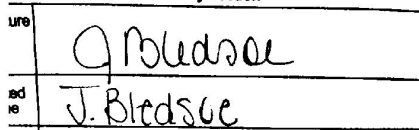 ure
J Bledsoe
ed
e
J. Bledsoe